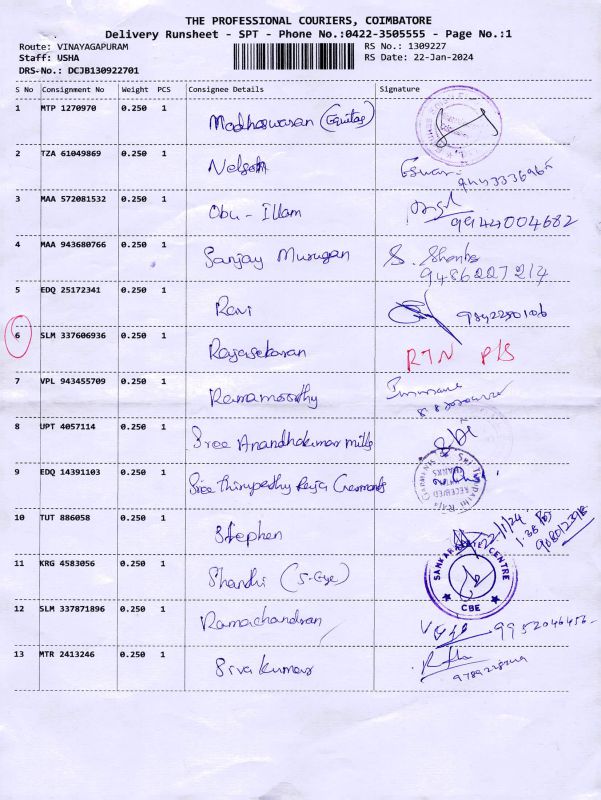 THE PROFESSIONAL COURIERS, COIMBATORE
Delivery Runsheet - SPT - Phone No.:0422-3505555 - Page No.:1
Route: VINAYAGAPURAM RS No.: 1309227
Staff: USHA RS Date: 22-Jan-2024
DRS-No.: DCJB130922701
S No Consignment No Weight PCS Consignee Details Signature
1 MTP 1270970 0.250 1 Madhaswaran (Equitas)
2 TZA 61049869 0.250 1 Nelson Eswari
3 MAA 572081532 0.250 1 Obu - Illam 9944004682
4 MAA 943680766 0.250 1 Sanjay Murugan S. Shantha
9486227214
5 EDQ 25172341 0.250 1 Ravi 9842250106
6 SLM 337606936 0.250 1 Rajasekaran RTN P/S
7 VPL 943455709 0.250 1 Ramamoorthy
8 UPT 4057114 0.250 1 Sree Anandhakumar mills
9 EDQ 14391103 0.250 1 Sree Thirupathy Raja Garments RECEIVED WITH THANKS
10 TUT 886058 0.250 1 Stephen 22/1/24
11 KRG 4583056 0.250 1 Shandhi (S-Eye) SANKARA CENTRE CBE
12 SLM 337871896 0.250 1 Ramachandran 9952046456
13 MTR 2413246 0.250 1 Sivakumar